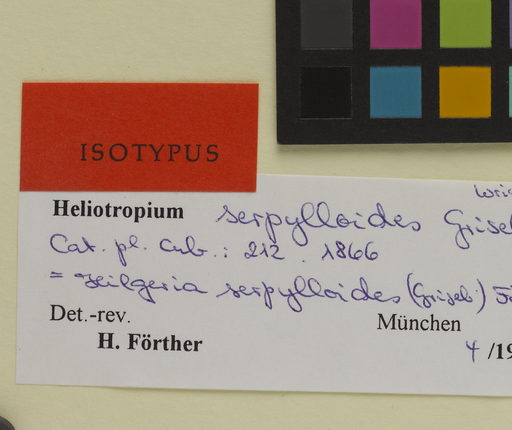 ISOTYPUS
Heliotropium serpylloides Griseb
Cat. pl. Cub.: 212. 1866
= Heilgeria serpylloides (Griseb.)
Det.-rev. München
H. Förther
4 /19